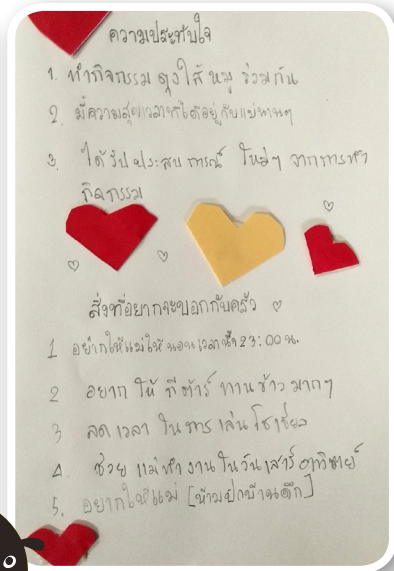 ความประทับใจ
1. ทำกิจกรรม ร่วมกัน
2. มีความสุขเวลาที่ได้อยู่กับแม่นานๆ
3. ได้รับประสบการณ์ ใหม่ๆ จากการทำ
กิจกรรม
สิ่งที่อยากจะบอกกับครัว
1 อยากให้แม่ให้นอนเวลา 23:00 น.
2 อยาก ให้ กีต้าร์ ทานข้าว มากๆ
3 ลด เวลา ใน การ เล่น โซเชียล
4. ช่วย แม่ทำ งาน ใน วัน เสาร์ อาทิตย์
5. อยากให้แม่ [ห้ามปิดบ้านดึก]